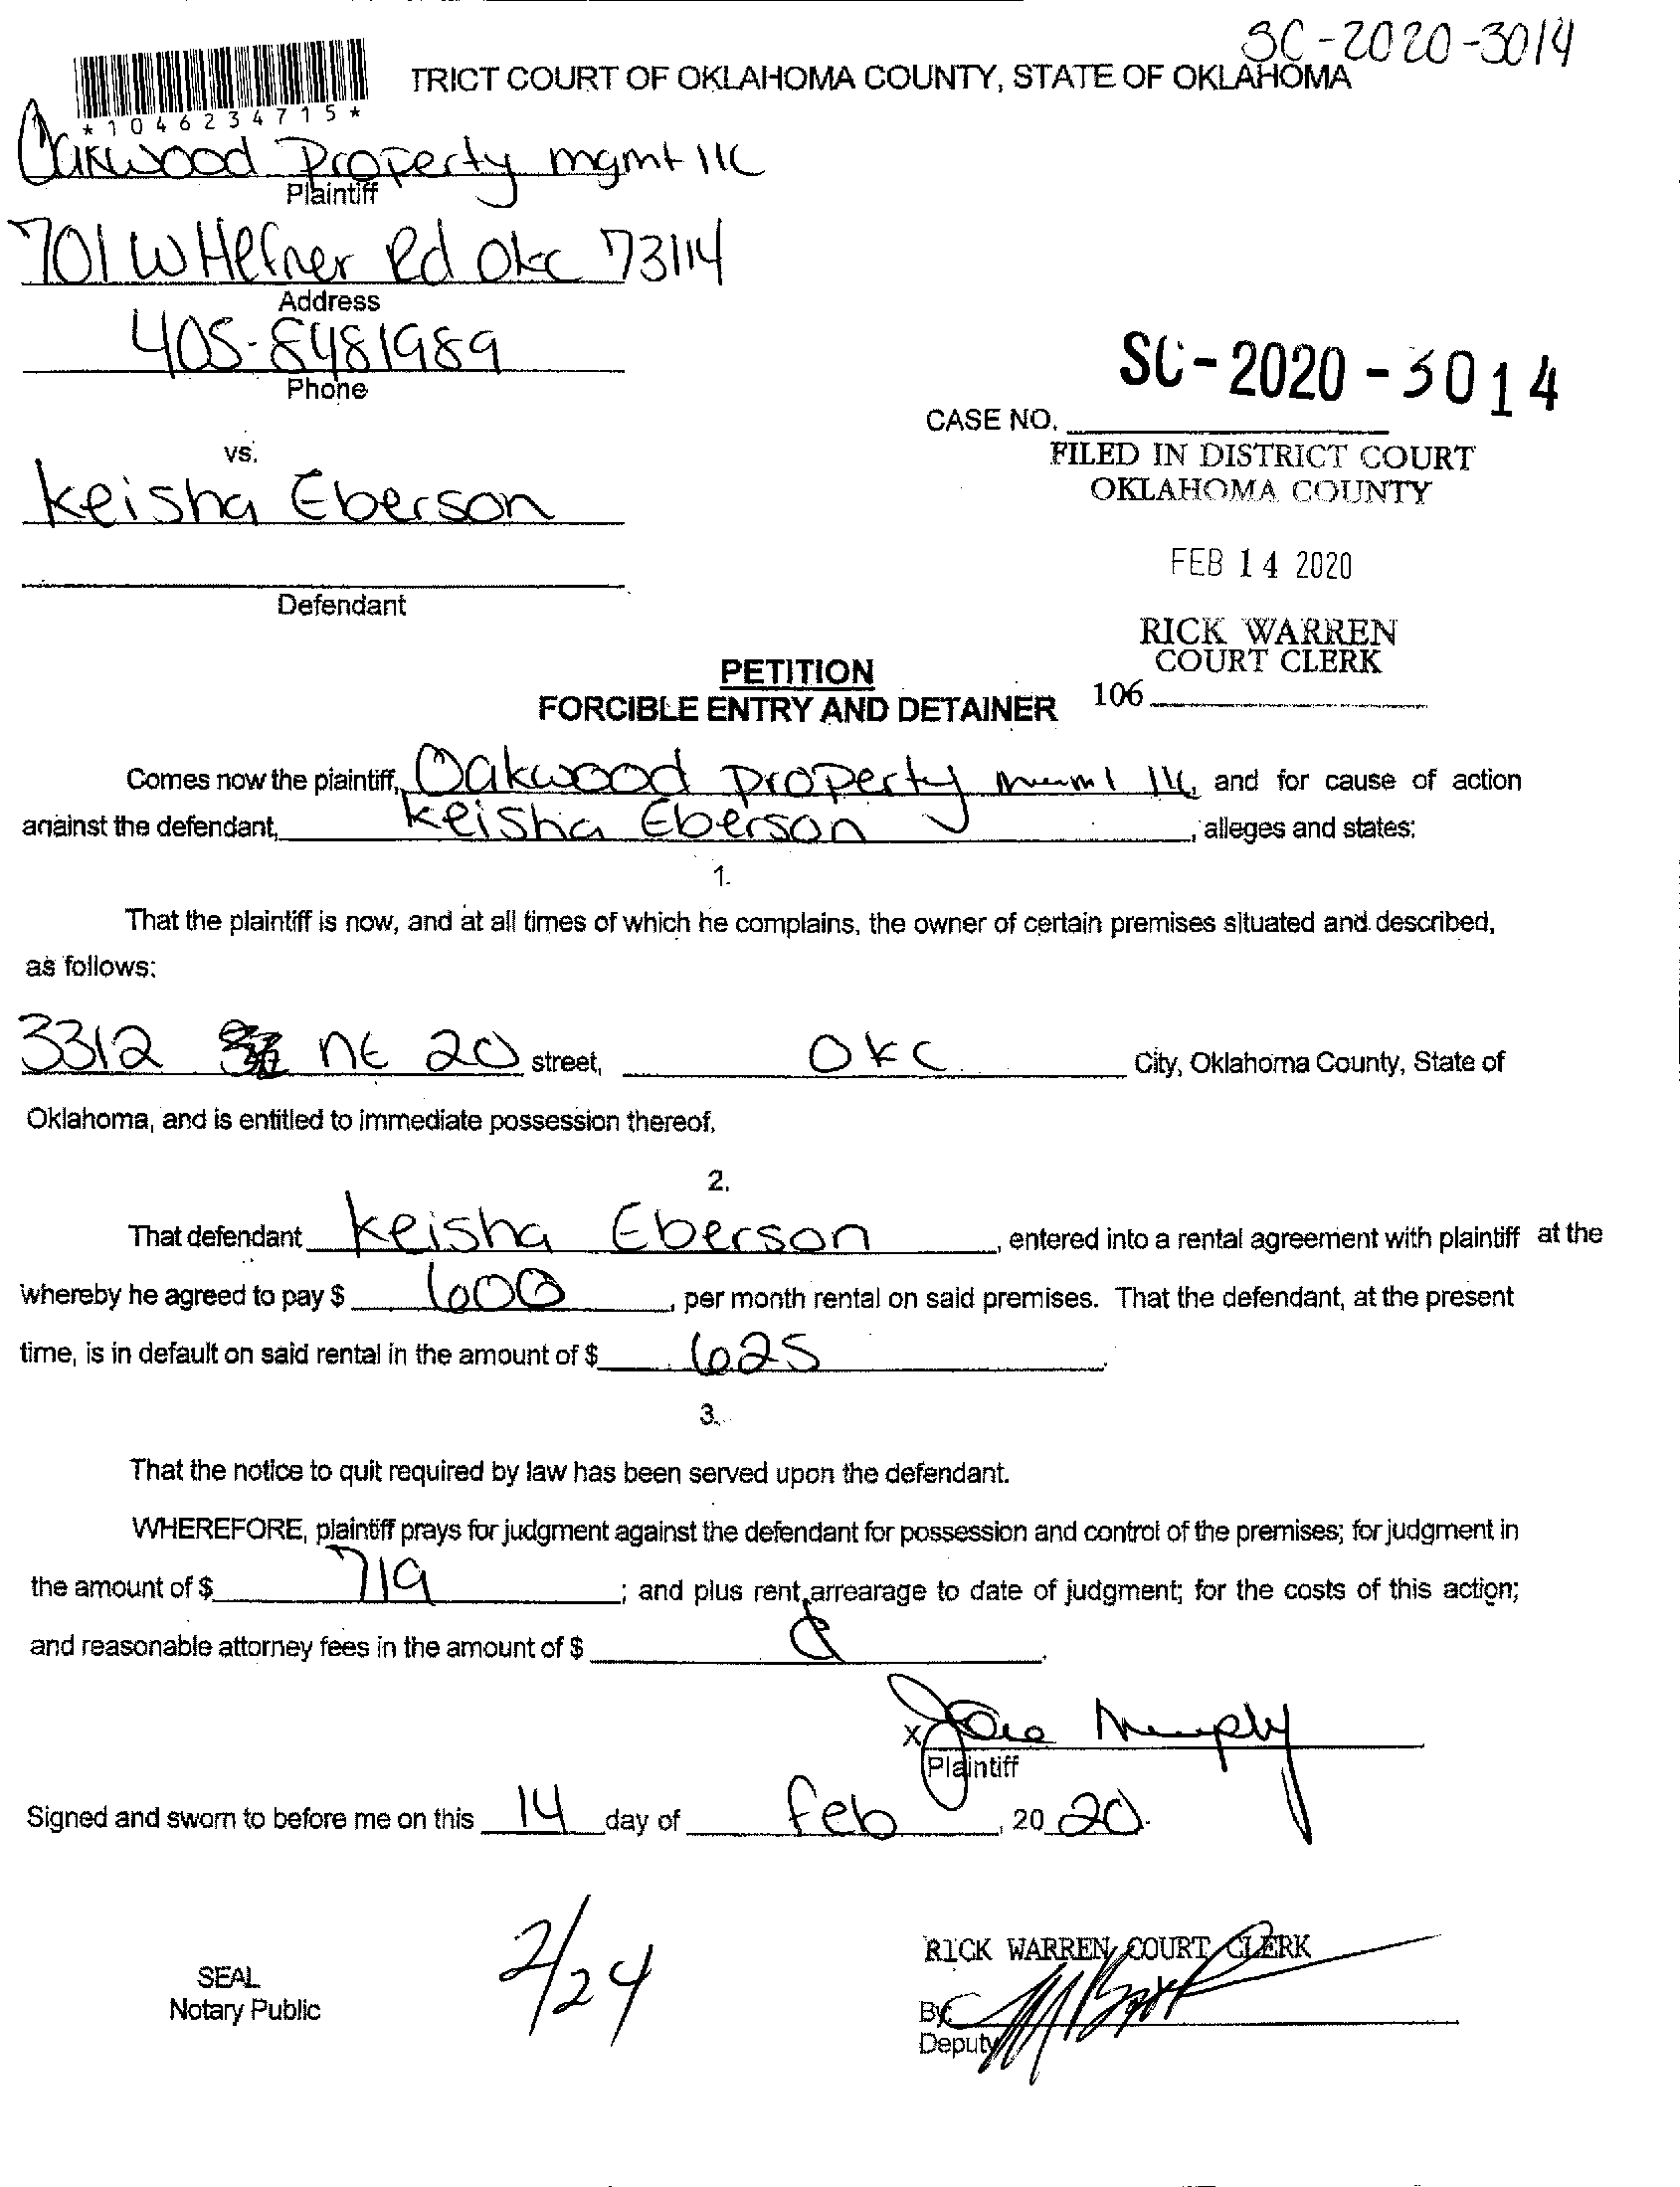 SC-2020-3014
TRICT COURT OF OKLAHOMA COUNTY, STATE OF OKLAHOMA
*1046234715*
Oakwood Property mgmt llc
Plaintiff
701 W Hefner Rd Okc 73114
Address
405-8481989
Phone
SC-2020-3014
CASE NO.
vs.
FILED IN DISTRICT COURT
OKLAHOMA COUNTY
Keisha Eberson
FEB 14 2020
Defendant
RICK WARREN
COURT CLERK
106
PETITION
FORCIBLE ENTRY AND DETAINER
Comes now the plaintiff, Oakwood Property llc, and for cause of action
against the defendant, Keisha Eberson, alleges and states:
1.
That the plaintiff is now, and at all times of which he complains, the owner of certain premises situated and described,
as follows:
3312 NE 20 street, OKC City, Oklahoma County, State of
Oklahoma, and is entitled to immediate possession thereof.
2.
That defendant Keisha Eberson, entered into a rental agreement with plaintiff at the
whereby he agreed to pay $ 600, per month rental on said premises. That the defendant, at the present
time, is in default on said rental in the amount of $ 625.
3.
That the notice to quit required by law has been served upon the defendant.
WHEREFORE, plaintiff prays for judgment against the defendant for possession and control of the premises; for judgment in
the amount of $ 719; and plus rent arrearage to date of judgment; for the costs of this action;
and reasonable attorney fees in the amount of $
X
Plaintiff
Signed and sworn to before me on this 14 day of Feb, 20 20.
2/24
SEAL
Notary Public
RICK WARREN, COURT CLERK
By
Deputy